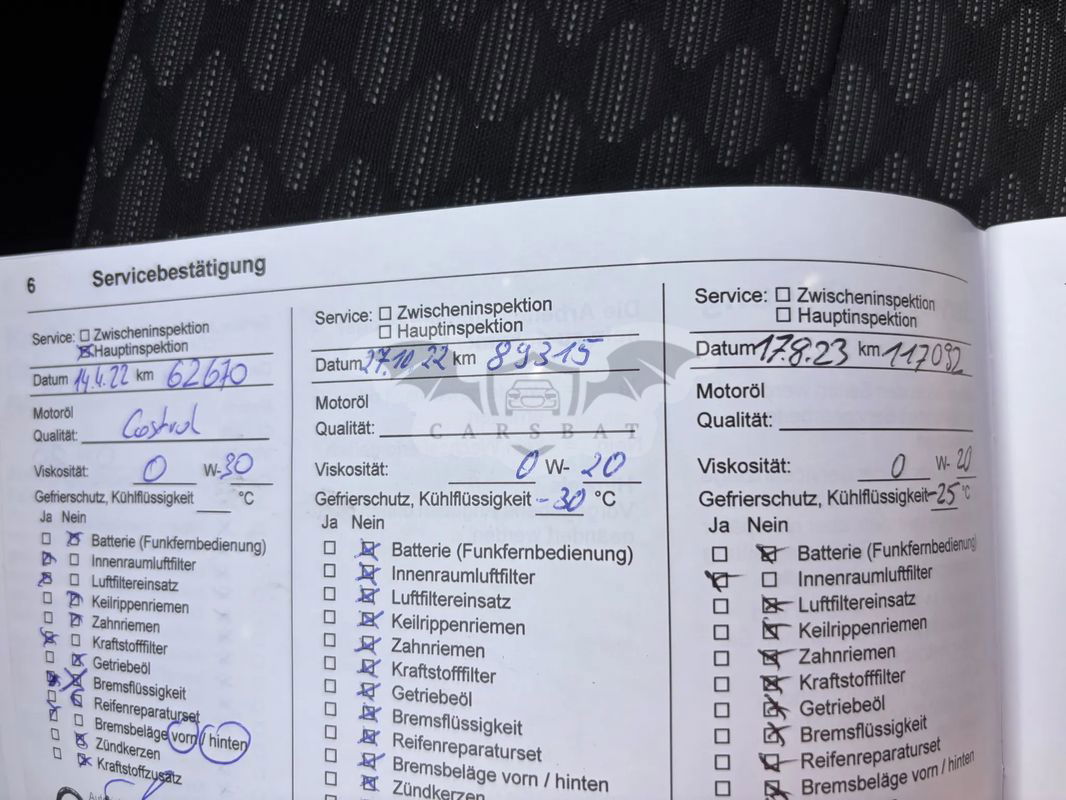 6 Servicebestätigung
Service: Zwischeninspektion
Hauptinspektion
Datum 14.4.22 km 62670
Motoröl
Qualität: Castrol
Viskosität: 0 W-30
Gefrierschutz, Kühlflüssigkeit °C
Ja Nein
Batterie (Funkfernbedienung)
Innenraumluftfilter
Luftfiltereinsatz
Keilrippenriemen
Zahnriemen
Kraftstofffilter
Getriebeöl
Bremsflüssigkeit
Reifenreparaturset
Bremsbeläge vorn / hinten
Zündkerzen
Kraftstoffzusatz
Service: Zwischeninspektion
Hauptinspektion
Datum 27.10.22 km 89315
Motoröl
Qualität:
Viskosität: 0 W- 20
Gefrierschutz, Kühlflüssigkeit -30 °C
Ja Nein
Batterie (Funkfernbedienung)
Innenraumluftfilter
Luftfiltereinsatz
Keilrippenriemen
Zahnriemen
Kraftstofffilter
Getriebeöl
Bremsflüssigkeit
Reifenreparaturset
Bremsbeläge vorn / hinten
Zündkerzen
Service: Zwischeninspektion
Hauptinspektion
Datum 17.8.23 km 117092
Motoröl
Qualität:
Viskosität: 0 W- 20
Gefrierschutz, Kühlflüssigkeit -25 °C
Ja Nein
Batterie (Funkfernbedienung)
Innenraumluftfilter
Luftfiltereinsatz
Keilrippenriemen
Zahnriemen
Kraftstofffilter
Getriebeöl
Bremsflüssigkeit
Reifenreparaturset
Bremsbeläge vorn / hinten
CARSBAT